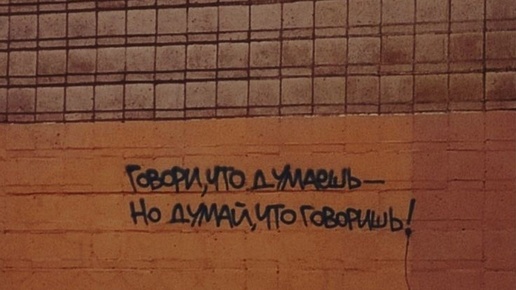 Говори, что думаешь —
Но думай, что говоришь!